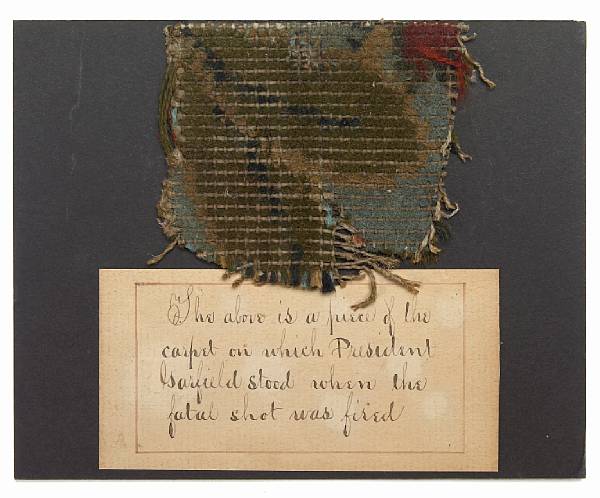 The above is a piece of the
carpet on which President
Garfield stood when the
fatal shot was fired